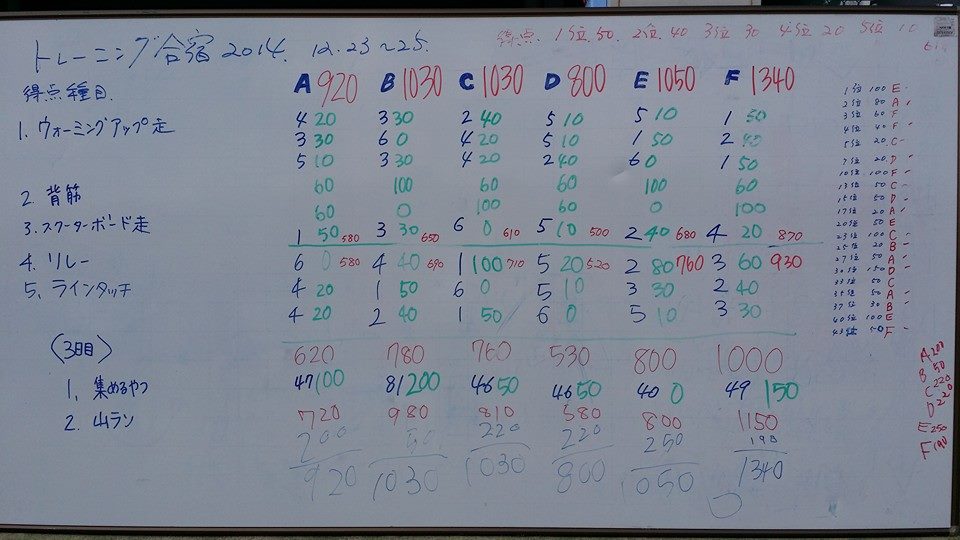 トレーニング合宿 2014. 12.23~25.
得点. 1位.50. 2位.40 3位 30 4位 20 5位 10
得点種目. A 920 B 1030 C 1030 D 800 E 1050 F 1340
1. ウォーミングアップ走 4 20 3 30 2 40 5 10 5 10 1 50
3 30 6 0 4 20 5 10 1 50 2 40
5 10 3 30 4 20 2 40 6 0 1 50
2. 背筋 60 100 60 60 100 60
60 0 100 60 0 100
3. スクーターボード走 1 50 580 3 30 650 6 0 610 5 10 500 2 40 680 4 20 870
4. リレー 6 0 580 4 40 690 1 100 710 5 20 520 2 80 760 3 60 930
5. ラインタッチ 4 20 1 50 6 0 5 10 3 30 2 40
4 20 2 40 1 50 6 0 5 10 3 30
(3日目) 620 780 760 530 800 1000
1. 集めるやつ 47 100 81 200 46 50 46 50 40 0 49 150
2. 山ラン 720 980 810 580 800 1150
200 50 220 220 250 190
920 1030 1030 800 1050 1340
1位 100 E
2位 80 A
3位 60 F
4位 40 F
5位 20 C
7位 20 D
10位 100 F
13位 50 C
15位 50 D
17位 20 A
20位 50 E
23位 100 C
25位 20 B
27位 50 A
30位 150 D
33位 50 C
35位 50 A
37位 30 B
40位 100 E
43位 50 F
A 200
B 50
C 220
D 220
E 250
F 190